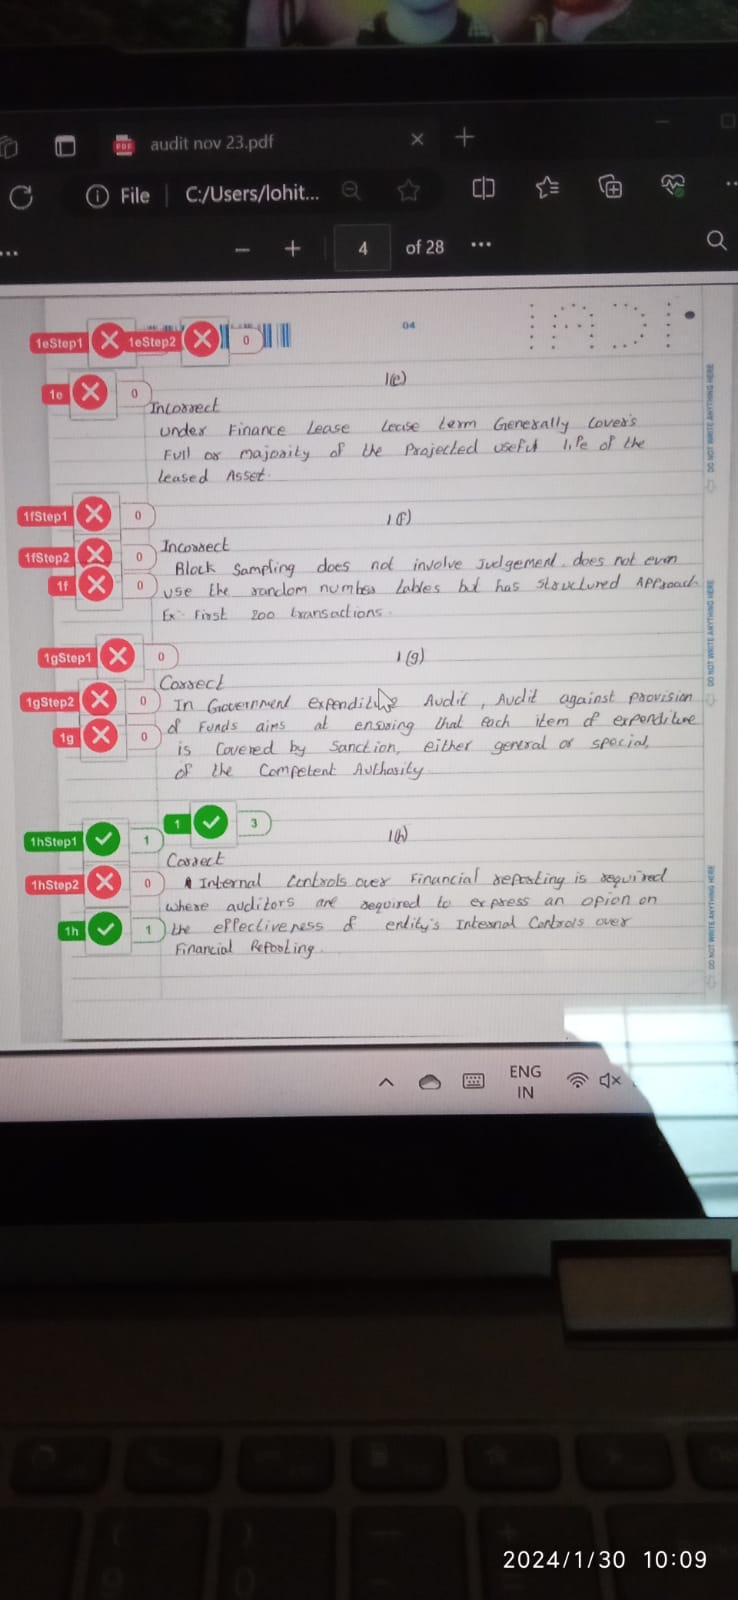 audit nov 23.pdf
File C:/Users/lohit...
4 of 28
1eStep1 1eStep2 0
04
1(e)
1e 0
Incorrect
under Finance Lease Lease term Generally Cover's
Full or majority of the Projected useful life of the
leased Asset.
1fStep1 0
1(f)
1fStep2 0
Incorrect
Block Sampling does not involve Judgement. does not even
1f 0
use the random number tables but has structured Approach
Ex- First 200 transactions.
1gStep1 0
1(g)
Correct
1gStep2 0
In Government expenditure Audit, Audit against provision
1g 0
of Funds aims at ensuring that each item of expenditure
is Covered by Sanction, either general or special,
of the Competent Authority
1 3
1hStep1 1
1(h)
Correct
1hStep2 0
Internal Controls over Financial reporting is required
where auditors are required to express an opion on
1h 1
the effectiveness of entity's Internal Controls over
Financial Reporting.
DO NOT WRITE ANYTHING HERE
DO NOT WRITE ANYTHING HERE
DO NOT WRITE ANYTHING HERE
ENG
IN
2024/1/30 10:09